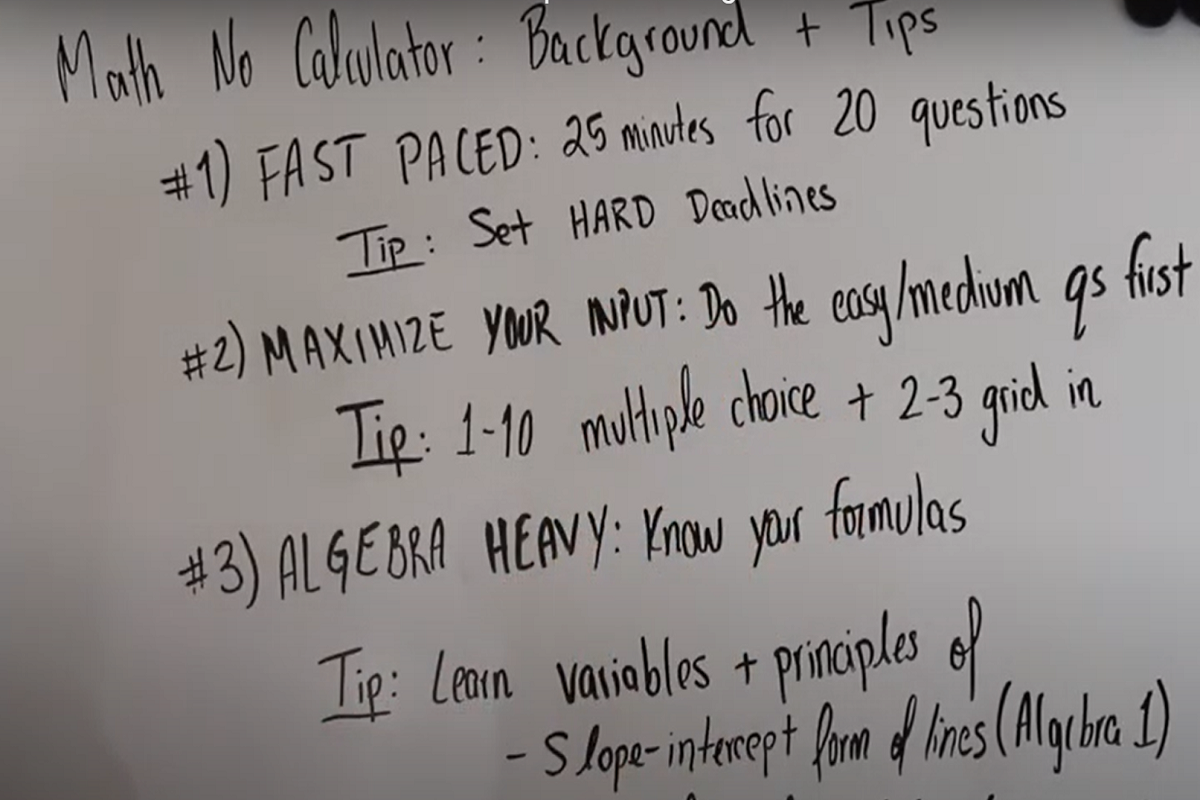 Math No Calculator: Background + Tips
#1) FAST PACED: 25 minutes for 20 questions
Tip: Set HARD Deadlines
#2) MAXIMIZE YOUR INPUT: Do the easy/medium qs first
Tip: 1-10 multiple choice + 2-3 grid in
#3) ALGEBRA HEAVY: Know your formulas
Tip: Learn variables + principles of
- Slope-intercept form of lines (Algebra 1)